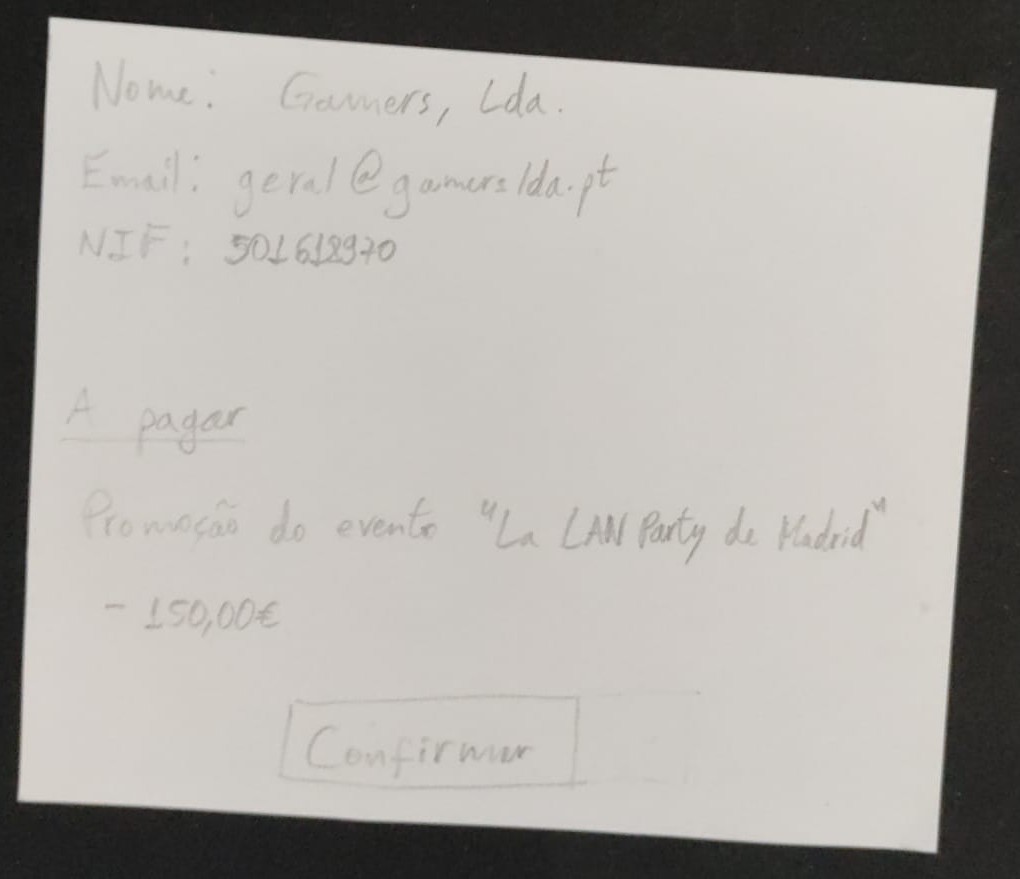 Nome: Gamers, Lda.
Email: geral@gamerslda.pt
NIF: 501618970
A pagar
Promoção do evento "La LAN Party de Madrid"
- 150,00€
Confirmar